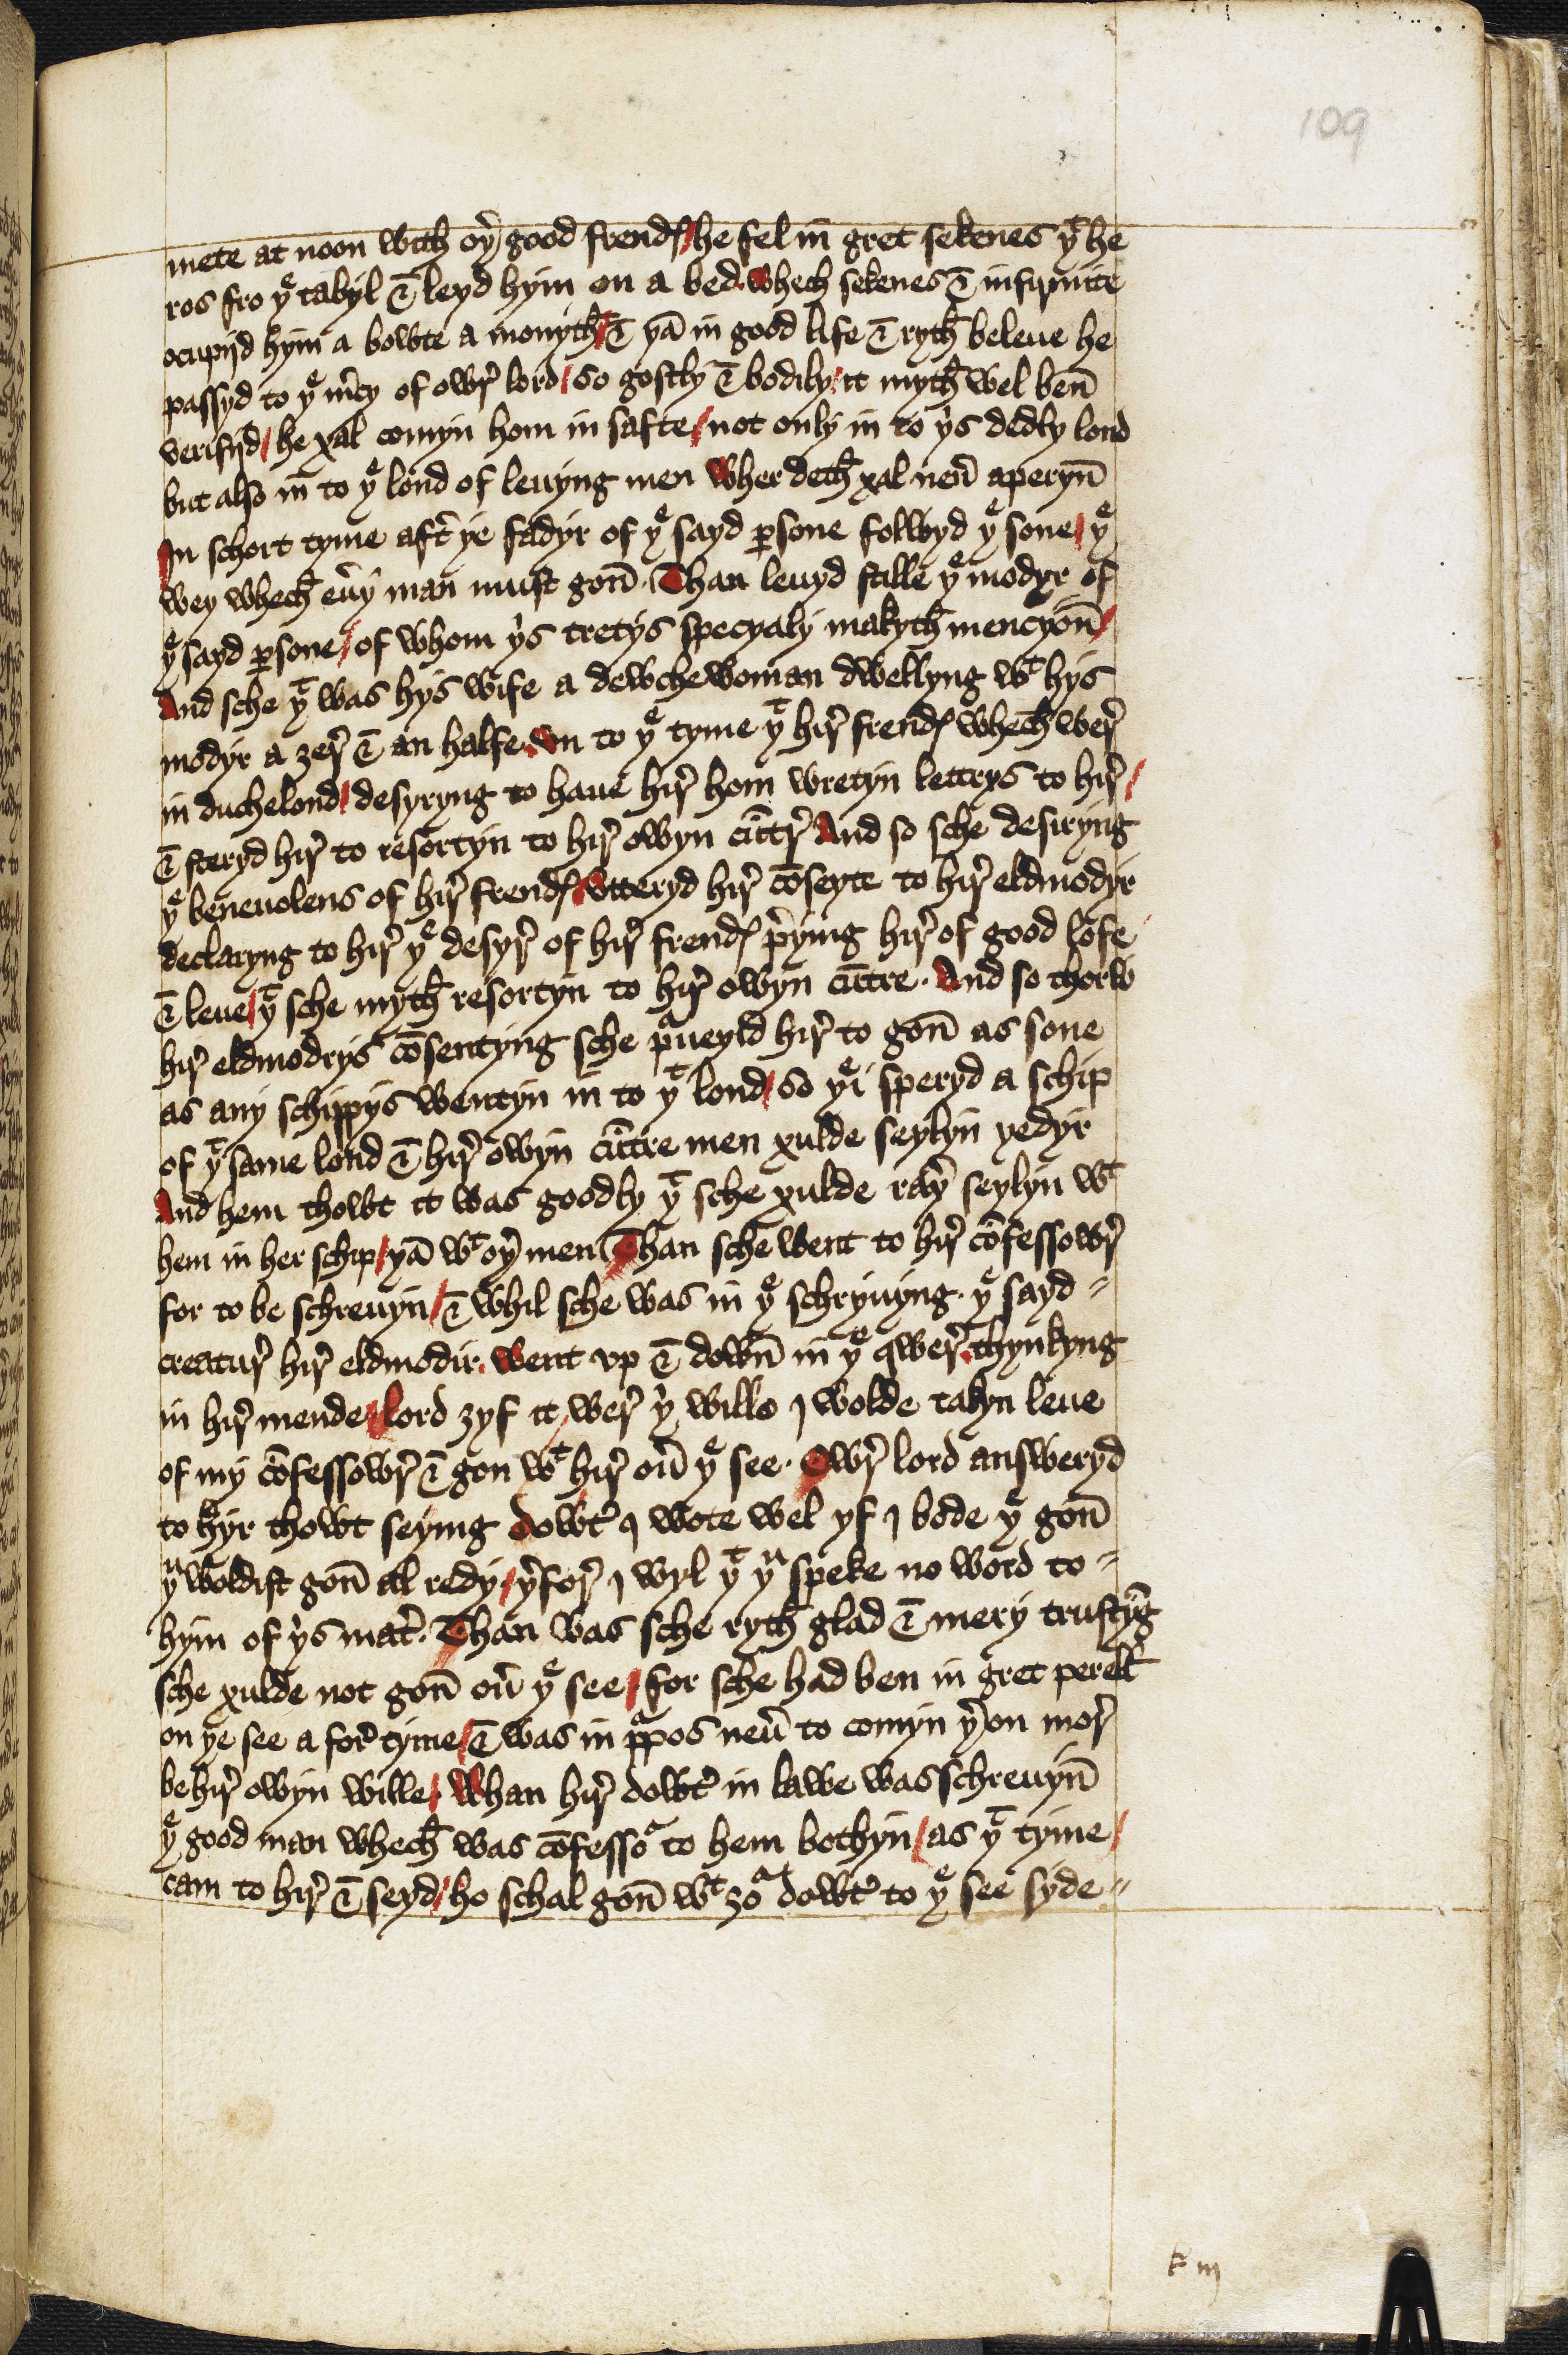 109
mete at noon with oþ̉ good frendꝭ / he fel in̄ gret sekenes yͭ he
ros fro yͤ tabyl & leyd hym on a bed. whech sekenes & infirmite
ocupijd hym a bowte a monyth̄ / & yā in good life & ryth̄ beleue he
passyd to yͤ m̉cy of owr̉ lord / so gostly & bodily / it myth̄ wel ben̄
verifijd / he xal comyn hom in safte / not only in to ẏs dedly lond
but also in̄ to yͤ lond of leuyng men wher deth̄ xal neủ aperyn̄
In schort tyme aft̉ ye fadyr of yͤ sayd ꝑsone folwyd yͤ sone / yͤ
wey whech̄ eủy man must gon̄. Than leuyd stille yͤ modyr of
yͤ sayd ꝑsone / of whom ẏs tretys specyaly makyth̄ mencyon̄ /
And sche yͭ was hys wife a dewche woman dwellyng wͭ hys
modyr a ȝer̉ & an halfe. vn to yͤ tyme yͭ hir̉ frendꝭ whech̄ wer̉
in duchelond / desyryng to haue hir̉ hom wretyn lettrys to hir̉ /
& steryd hir̉ to resortyn to hir̉ owyn cūtr̉ And so sche desiryng
yͤ beneuolens of hir̉ frendꝭ / vtteryd hir̉ cōseyte to hir̉ eldmodyr
declaryng to hir̉ yͤ desyr̉ of hir̉ frendꝭ p̉ying hir̉ of good lofe
& leue / yͭ sche myth̄ resortyn to hir̉ owyn cūtre. And so thorw
hir̉ eldmodrys cōsentyng sche pͣueyld hir̉ to gon̄ as sone
as any schippys wentyn in to yͭ lond / so yͤi speryd a schip
of yͭ same lond & hir̉ owyn cūtre men xulde seylyn yedyr
And hem thowt it was goodly yͭ sche xulde raỷ seylyn wͭ
hem in her schip / yā wͭ oỷ men Than sche went to hir̉ cōfessowr̉
for to be schreuyn / & whil sche was in yͤ schryuyng. yͤ sayd =
creatur̉ hir̉ eldmodir. went vp & down̄ in yͤ qwer̉. thynkyng
in hir̉ mende / lord ȝyf it wer̉ ỷ wille I wolde takyn leue
of my cōfessowr̉ & gon wͭ hir̉ oủ yͤ see. Owr̉ lord answeryd
to hyr thowt seying dowt̉ I wote wel yf I bode yͤ gon̄
yͧ woldist gon̄ al redy / ỷfor̉ I wyl yͭ yͧ speke no word to =
hym of ẏs mat̉. Than was sche ryth̄ glad & mery trustyn̄g
sche xulde not gon̄ oủ yͤ see / for sche had ben in gret perell
on ye see a for̉ tyme / & was in pͣpos neủ to comyn ỷ on mor̉
be hir̉ owyn wille / Whan hir̉ dowt̉ in lawe was schreuyn̄
yͤ good man whech̄ was cōfessoͣ to hem bothyn / as yͭ tyme /
cam to hir̉ & seyd / ho schal gon̄ wͭ ȝoͣ dowt̉ to yͤ see syde =